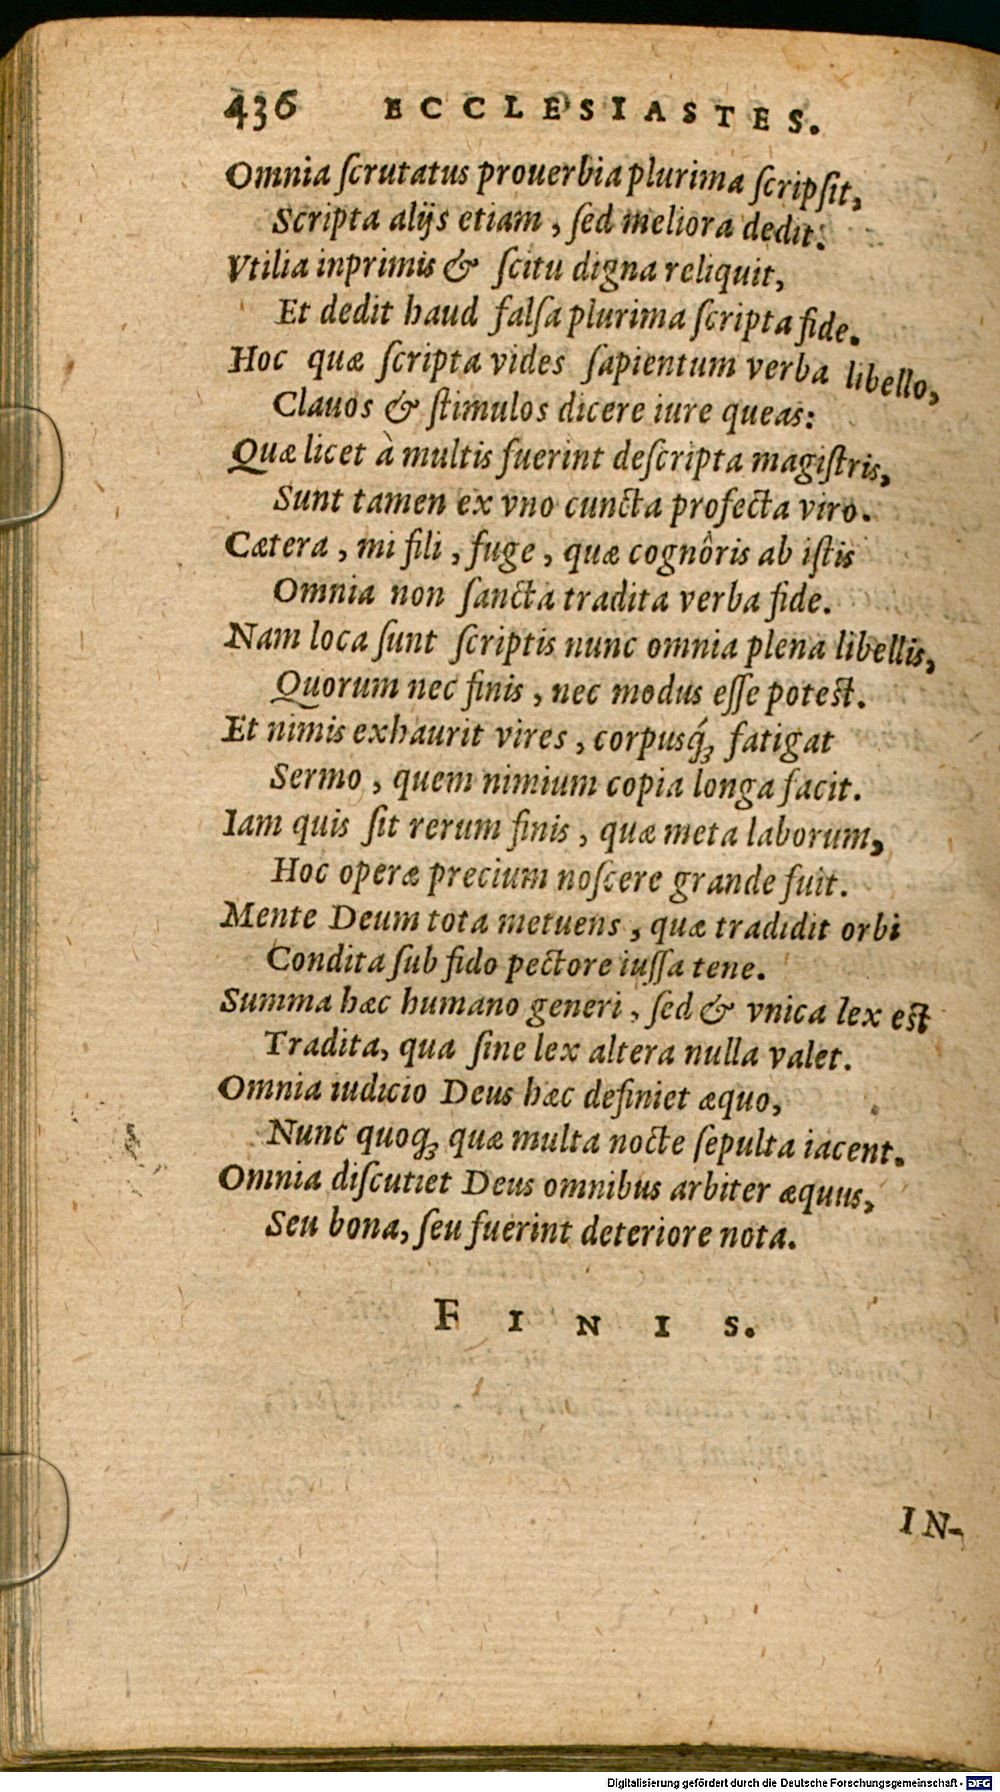 436 ECCLESIASTES.
Omnia ſcrutatus prouerbia plurima ſcripſit,
Scripta alijs etiam, ſed meliora dedit.
Vtilia inprimis & ſcitu digna reliquit,
Et dedit haud falſa plurima ſcripta fide.
Hoc quæ ſcripta vides ſapientum verba libello,
Clauos & ſtimulos dicere iure queas:
Quæ licet à multis fuerint deſcripta magiſtris,
Sunt tamen ex vno cuncta profecta viro.
Cætera, mi fili, fuge, quæ cognôris ab iſtis
Omnia non ſancta tradita verba fide.
Nam loca ſunt ſcriptis nunc omnia plena libellis,
Quorum nec finis, nec modus eſſe poteſt.
Et nimis exhaurit vires, corpusq́ꝫ fatigat
Sermo, quem nimium copia longa facit.
Iam quis ſit rerum finis, quæ meta laborum,
Hoc operæ precium noſcere grande fuit.
Mente Deum tota metuens, quæ tradidit orbi
Condita ſub fido pectore iuſſa tene.
Summa hæc humano generi, ſed & vnica lex eſt
Tradita, qua ſine lex altera nulla valet.
Omnia iudicio Deus hæc definiet æquo,
Nunc quoqꝫ quæ multa nocte ſepulta iacent.
Omnia diſcutiet Deus omnibus arbiter æquus,
Seu bona, ſeu fuerint deteriore nota.
FINIS.
IN-
Digitalisierung gefördert durch die Deutsche Forschungsgemeinschaft - DFG